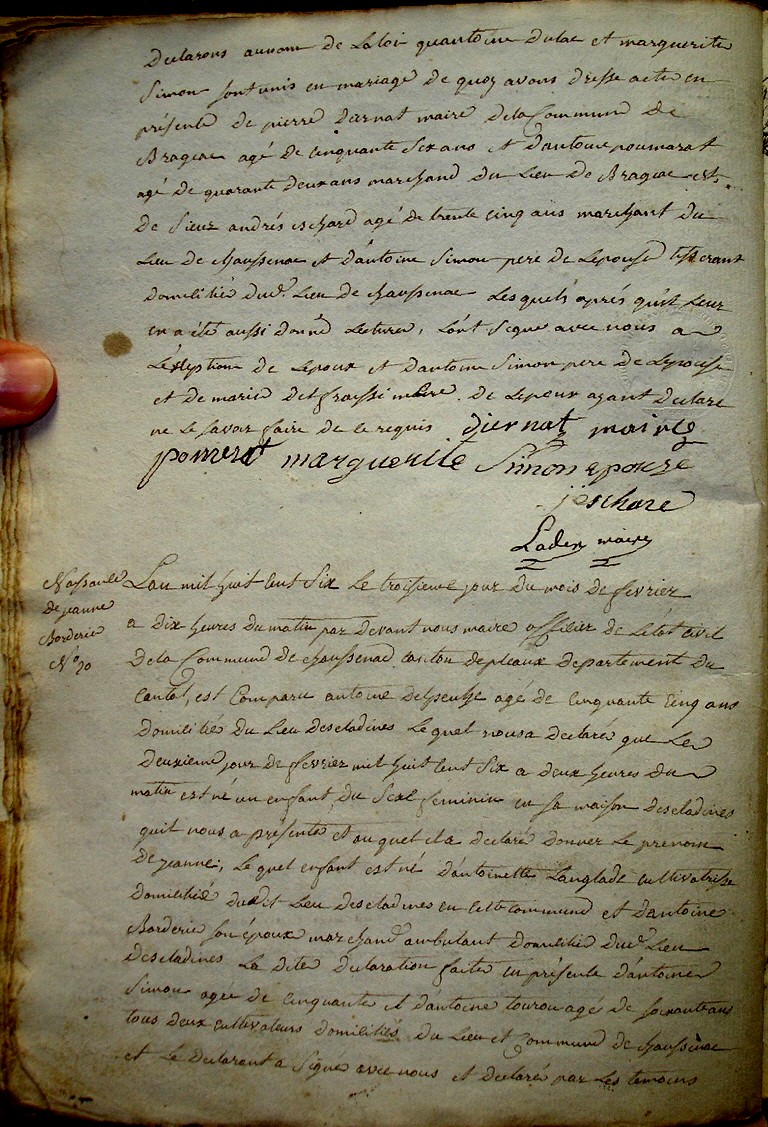 Declarons au nom de La loi quantoine Dulac et marguerite
Simon sont unis en mariage de quoy avons dresse acte en
présence de pierre Diernat maire dela Commune de
Brageac agé de Cinquante Six ans et Dantoine poumarat
agé de quarante deux ans marchand du Lieu de Brageac et
de Sieur andrés jschard agé de trente cinq ans marchant du
Lieu de chaussenac et dantoine Simon pere de Lepouse tisserant
domicilié dud. Lieu de chaussenac Lesquels aprés quil Leur
en a été aussi donné Lecture, lont Signe avec nous a
Léxception de Lepoux et dantoine Simon pere de Lepouse
et de marie delfraissi mere de Lepoux ayant declare
ne le savoir faire de ce requis diernat maire
pomerat marguerite Simon epouse
jschare
Lader maire
Naissance
de jeanne
Borderie
N° 20
Lan mil huit Cent Six Le troisieme jour du mois de fevrier
a dix heures du matin par devant nous maire officier de Létat civil
dela Commune de chaussenac canton depleaux departement du
Cantal, est Comparu antoine agé de Cinquante Cinq ans
domicilié du Lieu descladines Lequel nous a declaré que Le
deuxieme jour de fevrier mil huit Cent Six a deux heures du
matin est né un enfant du Sexe feminin en sa maison descladines
quil nous a présenté et auquel il a declaré donner Le prenom
de jeanne, Lequel enfant est né dantoinette Langlade cultivatrisse
domicilié dudit Lieu descladines en cette commune et dantoine
Borderie son époux marchand ambulant domicilié dud. Lieu
descladines La dite declaration faite en présence dántoine
Simon agee de Cinquante et dántoine tourou agé de soixante ans
tous deux cultivateurs domiciliés du Lieu et Commune de chaussenac
et Le declarant a Signe avec nous et declaré par Les temoins